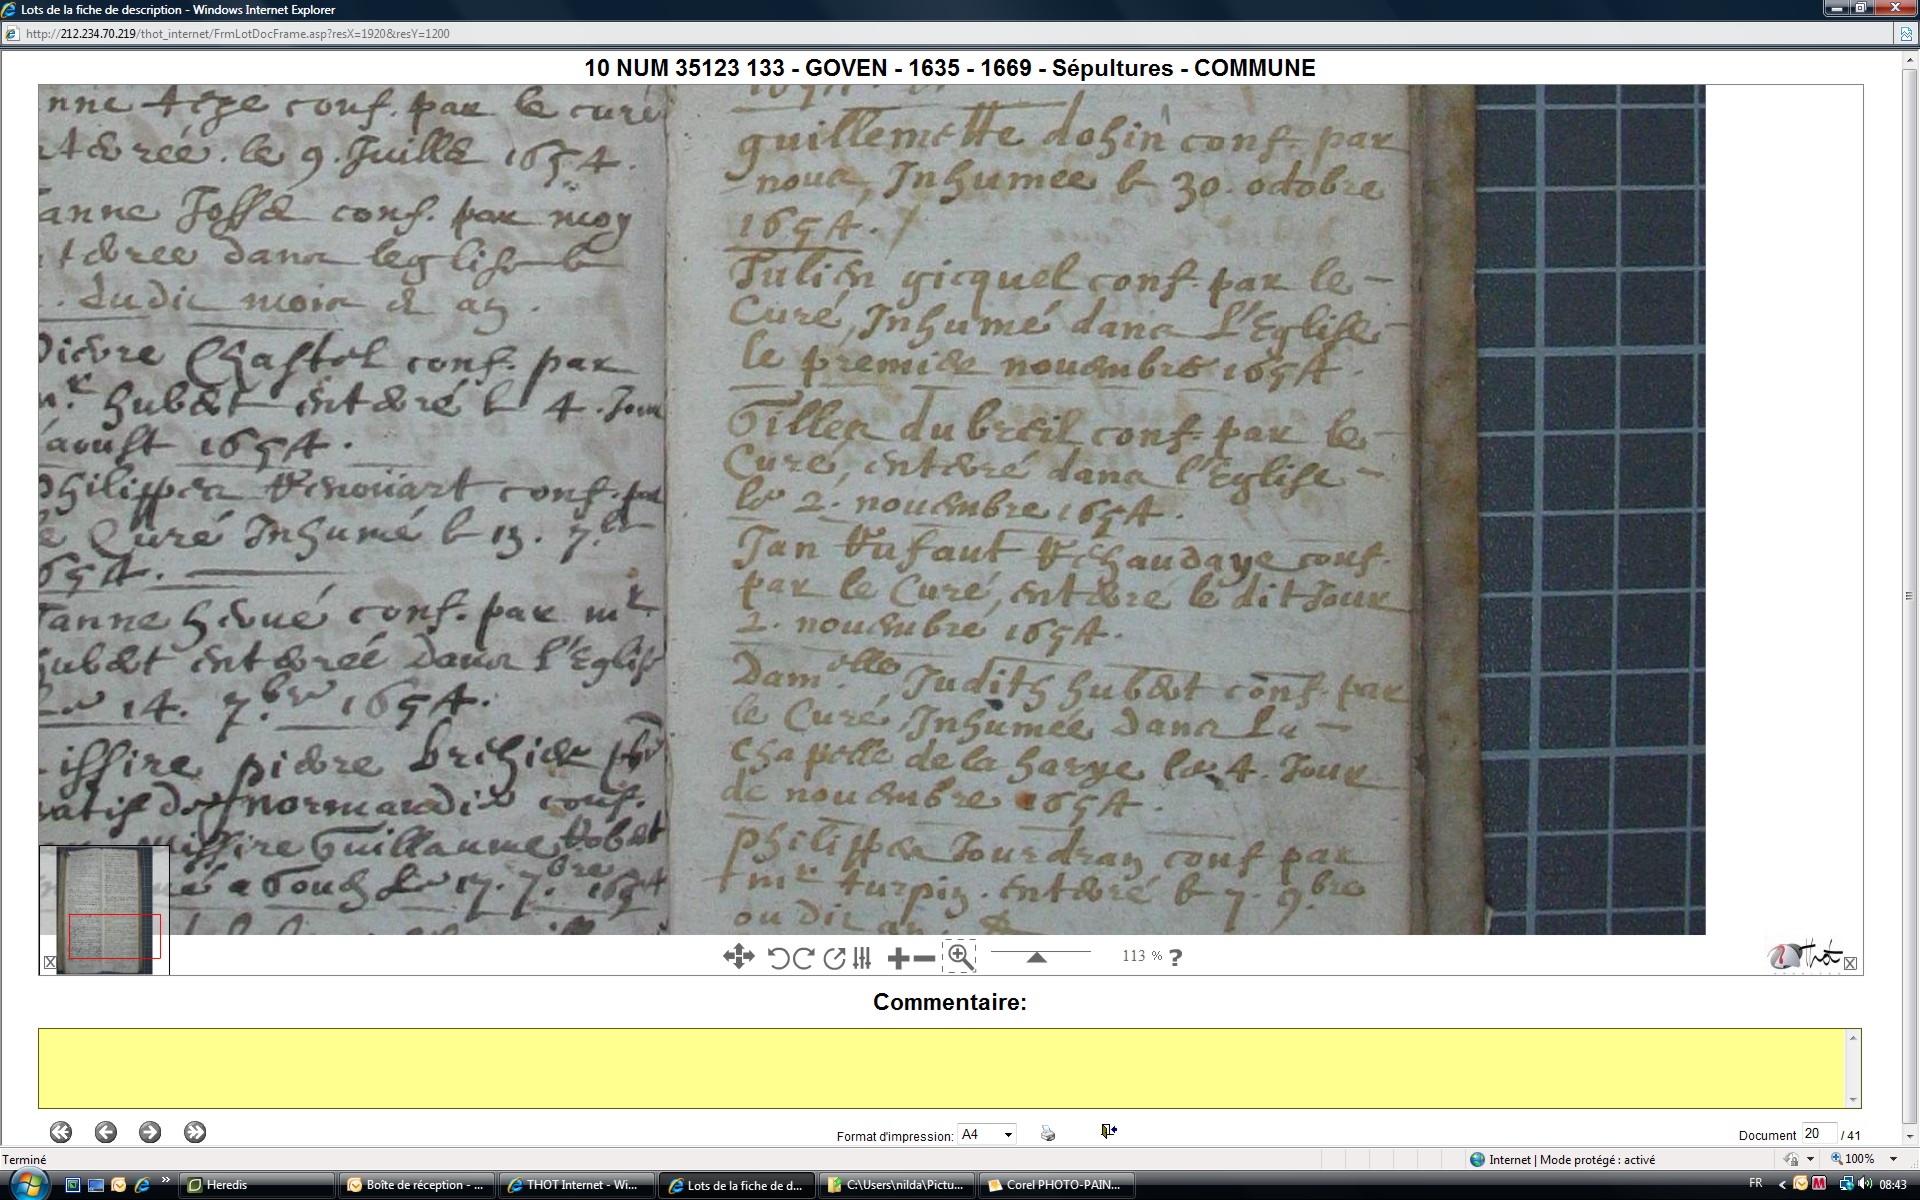 Lots de la fiche de description - Windows Internet Explorer
http://212.234.70.219/thot_internet/FrmLotDocFrame.asp?resX=1920&resY=1200
10 NUM 35123 133 - GOVEN - 1635 - 1669 - Sépultures - COMMUNE
conf. par le curé
le 9. Juillet 1654.
anne Josset conf. par moy
terree dans leglise le
dudit mois & an.
Pierre Chastel conf. par
mr. hubert enterré le 4. Jour
aoust 1654.
philippes Renouart conf. par
le Curé Inhumé le 13. 7.bre
1654.
Janne hervé conf. par mr.
hubert enterreé dans l'Eglise
le 14. 7.bre 1654.
issire pierre brehier pbre
natif de normandie conf.
missire Guillaume Robert
le 17. 7.bre 1654
guillemette dohin conf. par
nous, Inhumee le 30. octobre
1654.
Julien gicquel conf. par le -
Curé, Inhumé dans L'Eglise -
le premier nouembre 1654.
Gilles du breil conf. par le -
Curé, enterré dans l'Eglise -
le 2. nouembre 1654.
Jan conf.
par le Curé, enterré le dit Jour
2. nouembre 1654.
Dam.elle Judith hubert conf. par
le Curé Inhumée dans La -
Chapelle de la harye le 4. Jour
de nouembre 1654.
philippes Jourdran conf par
mr turpin. enterré le 7. 9.bre
ou dit an.
113 % ?
Thot
Commentaire:
Format d'impression: A4
Document 20 / 41
Terminé
Internet | Mode protégé : activé
100%
Heredis
Boîte de réception - ...
THOT Internet - Wi...
Lots de la fiche de d...
C:\Users\nilda\Pictu...
Corel PHOTO-PAIN...
FR
08:43